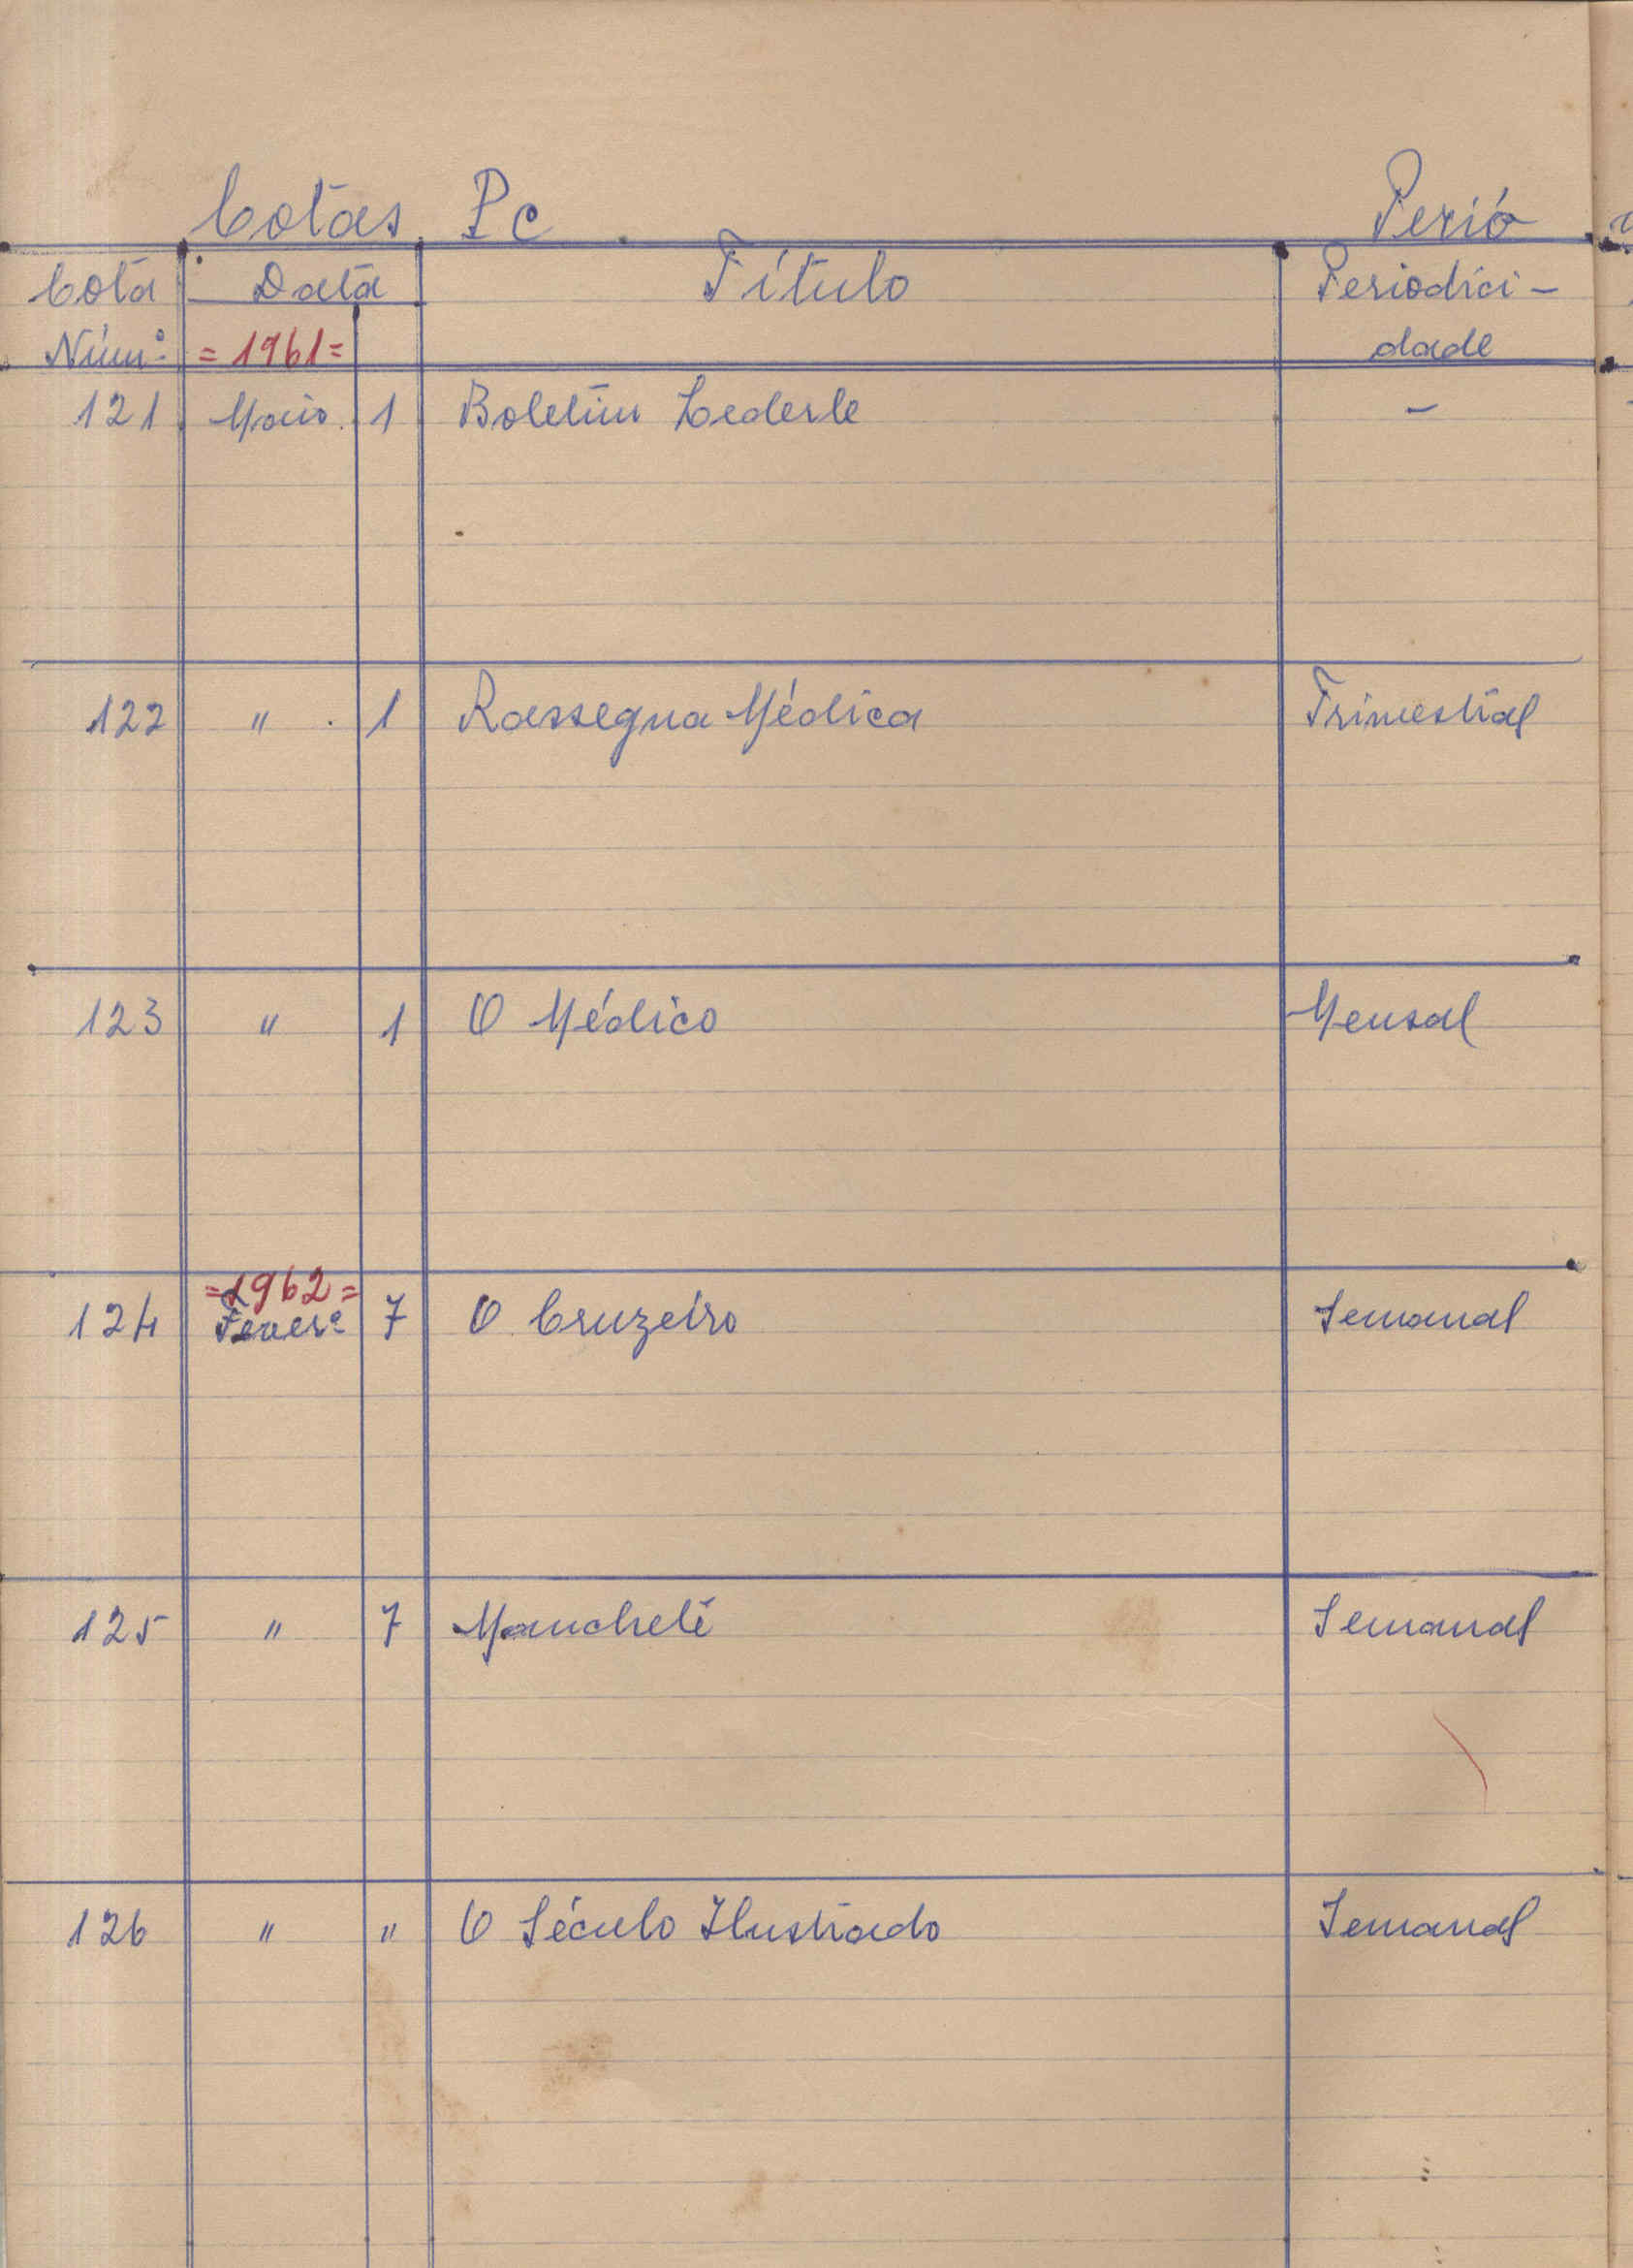 Cotas Pc Perió
Cota Data Título Periodici-
Núm.º =1961= dade
121 Maio 1 Boletim Lederle -
122 " 1 Rassegna Médica Trimestral
123 " 1 O Médico Mensal
=1962=
124 Fever.º 7 O Cruzeiro Semanal
125 " 7 Manchete Semanal
126 " " O Século Ilustrado Semanal